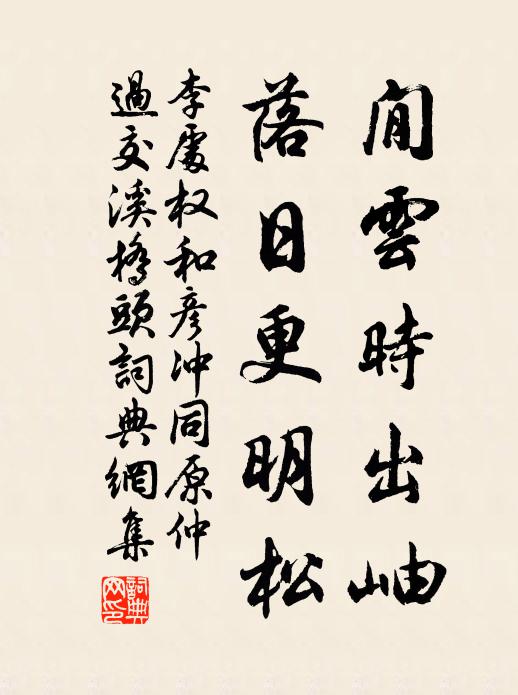 閒雲時出岫
落日更明松
李處权和彦冲同原仲
過交溪橋頭詞典網集
詞典網印